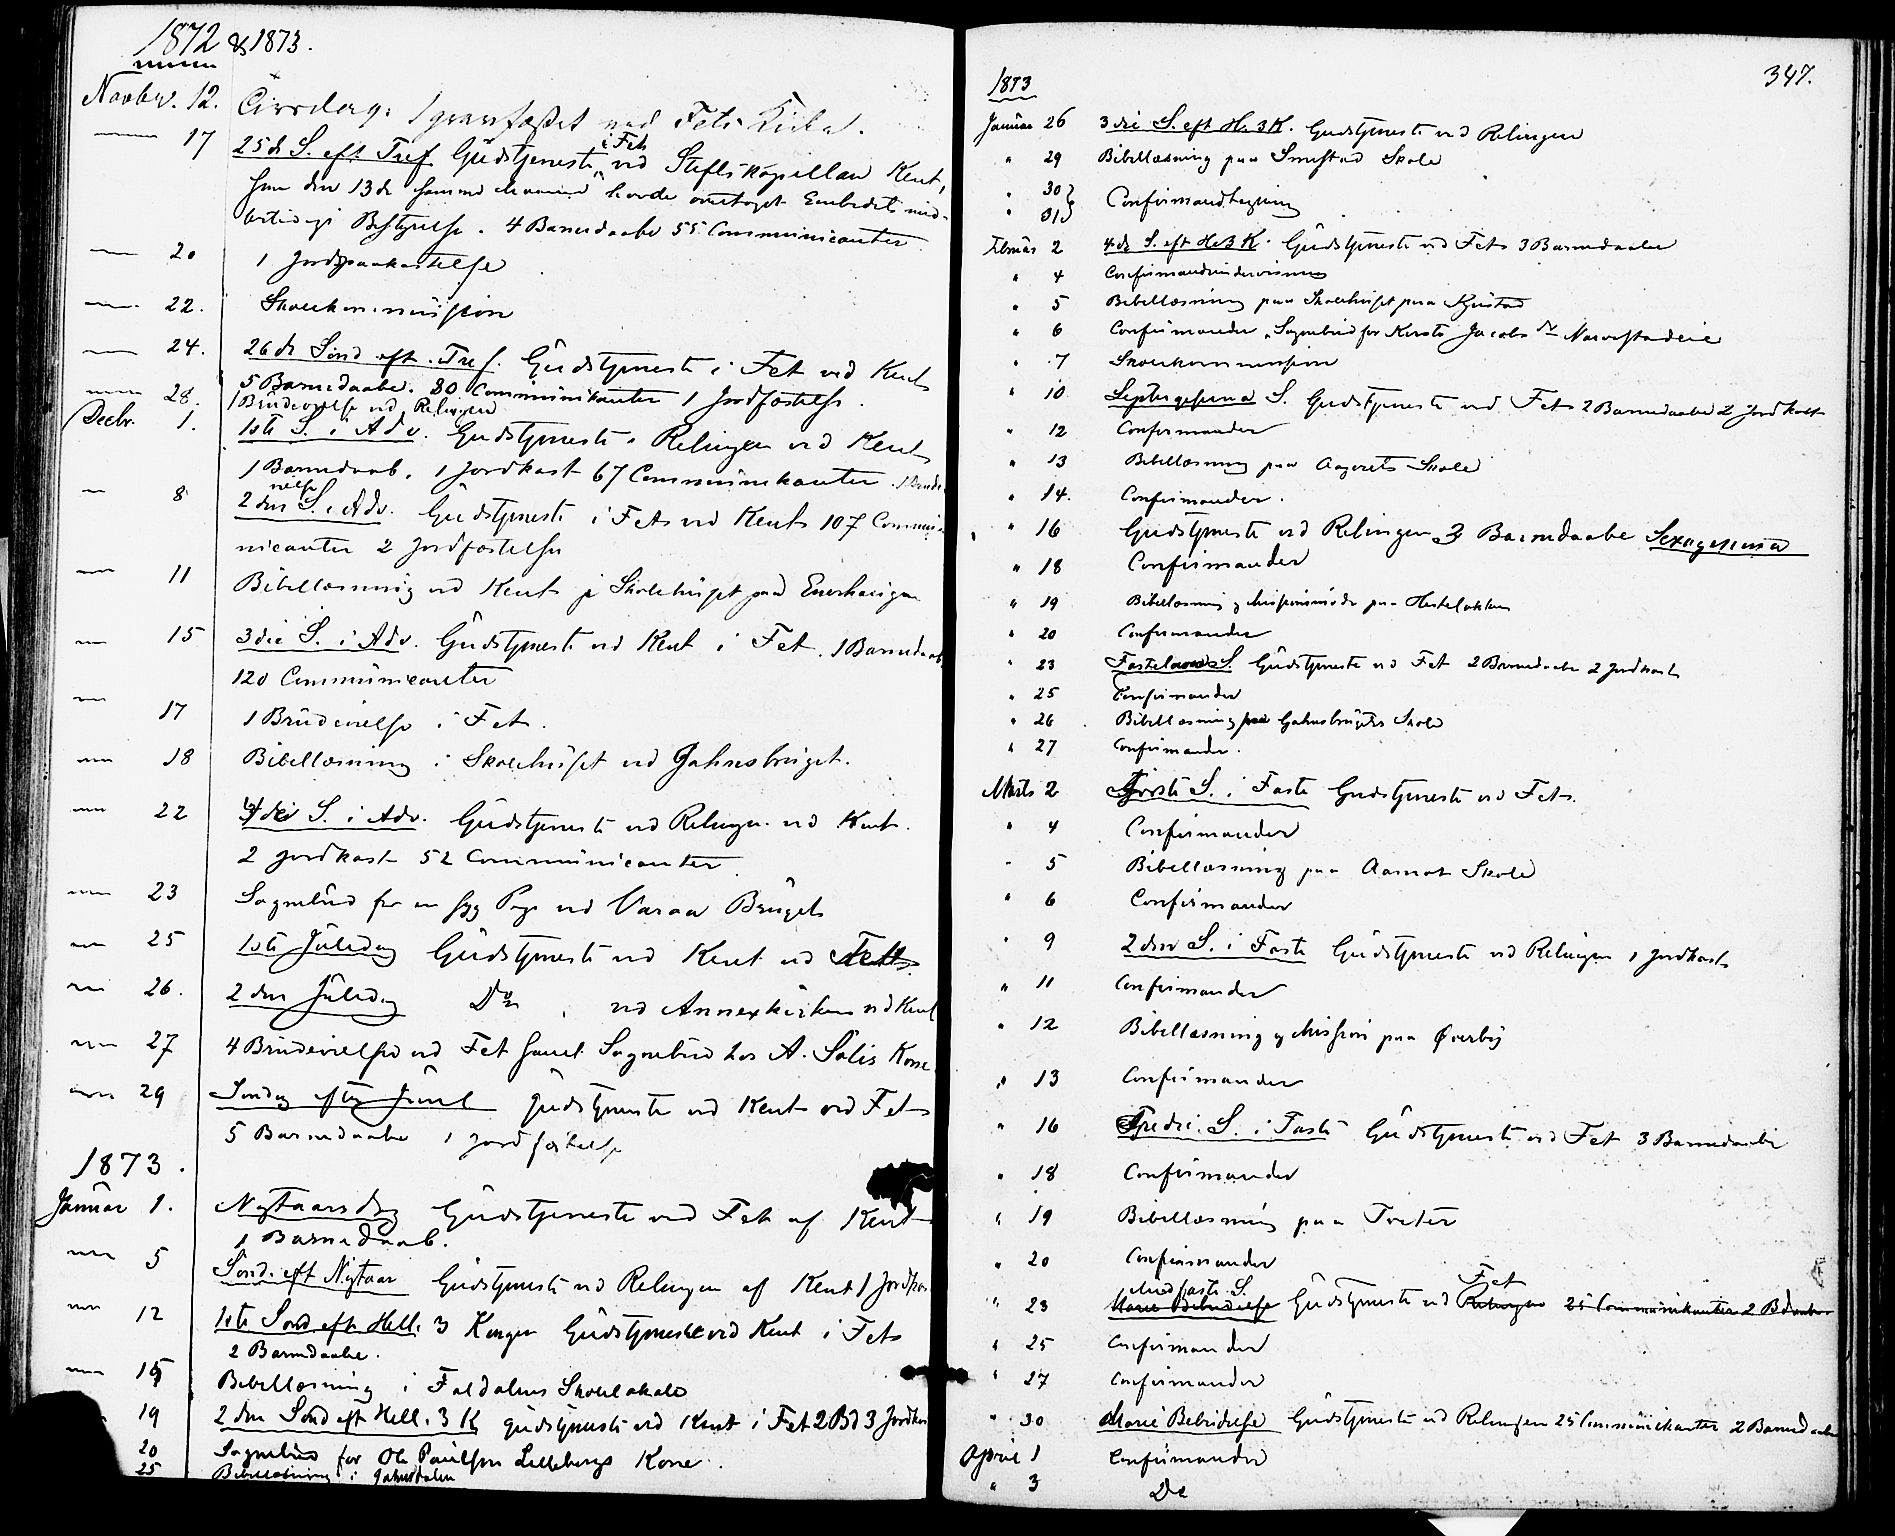 1872 & 1873.
Novbr. 12. Tirsdag: 1 gravfæstet ved Fets Kirke.
17 25de S. eft Tref. Gudstjeneste i Fet ved Stiftskapellan Kent,
som den 13de havde overtaget Embedets mid-
lertidige Bestyrelse. 4 Barnedaabe 55 Communicanter
20 1 Jordpaakastelse
22. Skolekommission
24. 26de Sønd eft. Tref. Gudstjeneste i Fet ved Kent
5 Barnedaabe. 80 Communikanter 1 Jordfæstelse.
28. 1 Brudevielse ved Relingen
Decbr. 1. 1ste S. i Adv. Gudstjeneste i Relingen ved Kent
1 Barnedaab, 1 Jordkast 67 Communikanter. 1 Brude-
vielse
8 2den S. i Adv. Gudstjeneste i Fet ved Kent 107 Commu-
nicanter 2 Jordfæstelser
11 Bibellæsning ved Kent i Skolehuset paa
15 3die S. i Adv. Gudstjeneste ved Kent i Fet. 1 Barnedaab
120 Communicanter
17 1 Brudevielse i Fet.
18 Bibellæsning i Skolehuset ved Jahnsbruget.
22 4de S. i Adv. Gudstjeneste ved Relingen ved Kent.
2 Jordkast 52 Communicanter
23 Sognebud for en syg Pige ved Varaa Brugets
25 1ste Juledag Gudstjeneste ved Kent ved Fet
26. 2den Juledag Do ved Annexkirken ved Kent
27 4 Brudevielser ved Fet samt Sognebud hos A. Solis Kone
29 Søndag efter Juul Gudstjeneste ved Kent ved Fet
5 Barnedaabe 1 Jordfæstelse
1873.
Januar 1. Nytaarsdag Gudstjeneste ved Fet af Kent
1 Barnedaab.
5 Sønd. eft Nytaar Gudstjeneste ved Relingen af Kent 1 Jordkas
12 1ste Sønd eft Hell. 3 Konger Gudstjeneste ved Kent i Fet
2 Barnedaabe.
15 Bibellæsning i Faldalens Skolelokale
19 2den Sønd eft Hell. 3 K Gudstjeneste ved Kent i Fet 2 Bd 3 Jordkas
20 Sognebud for Ole Paulsen Lillebergs Kone.
25 Bibellæsning i Jahrsdalen
347.
1873
Januar 26 3die S. eft H. 3 K. Gudstjeneste ved Relingen
" 29 Bibellæsning paa Skole
" 30
" 31 Confirmandtegning
Februar 2 4de S. eft H. 3 K. Gudstjeneste ved Fet 3 Barnedaabe
" 4 Confirmandundervisning
" 5 Bibellæsning paa Skolehuset paa
" 6 Confirmander. Sognebud for Kirsti Jacobs
" 7 Skolekommission
" 10 Septuagesima S. Gudstjeneste ved Fet 2 Barnedaabe 2 Jordkast
" 12 Confirmander
" 13 Bibellæsning paa Skole
" 14. Confirmander.
" 16 Gudstjeneste ved Relingen 3 Barnedaabe Sexagesima
" 18 Confirmander
" 19 Bibellæsning og Missionsmøde paa
" 20 Confirmander
" 23 Fastelavns S. Gudstjeneste ved Fet 2 Barnedaabe 2 Jordkast
" 25 Confirmander
" 26 Bibellæsning paa Jahnsbrugets Skole
" 27 Confirmander.
Marts 2 Første S. i Faste Gudstjeneste ved Fet.
" 4 Confirmander
" 5 Bibellæsning paa Aamot Skole
" 6 Confirmander
" 9 2den S. i Faste Gudstjeneste ved Relingen 1 Jordkast
" 11 Confirmander
" 12 Bibellæsning og Mission paa Øverby
" 13 Confirmander
" 16 Tredie S. i Faste Gudstjeneste ved Fet 3 Barnedaabe
" 18 Confirmander
" 19 Bibellæsning paa Tveter
" 20 Confirmander
Midfaste S. Fet
" 23 Marie Bebudelse Gudstjeneste ved Relingen 25 Communikanter 2 Bdaabe
" 25 Confirmander
" 27 Confirmander
" 30 Marie Bebudelse Gudstjeneste ved Relingen 25 Communikanter 2 Barnedaabe
April 1 Confirmander
" 3 Do